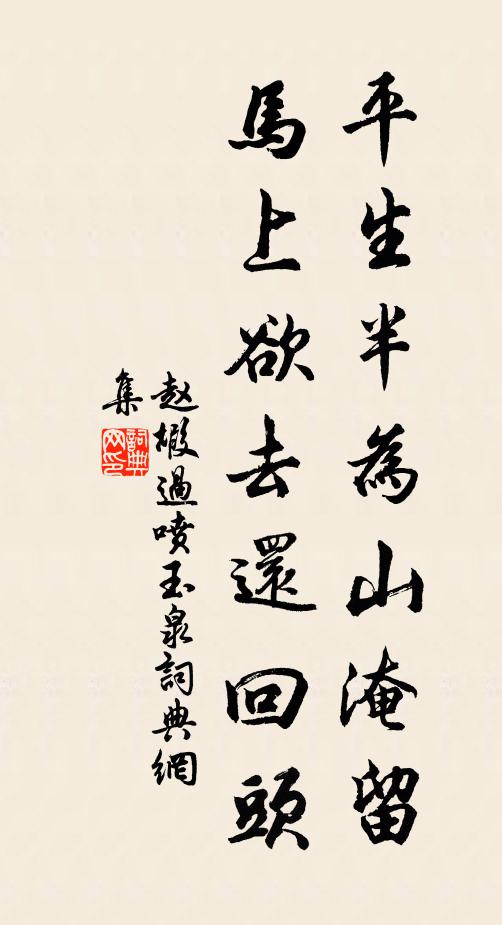 平生半為山淹留
馬上欲去還回頭
赵嘏過噴玉泉詞典網
集
詞典
网印